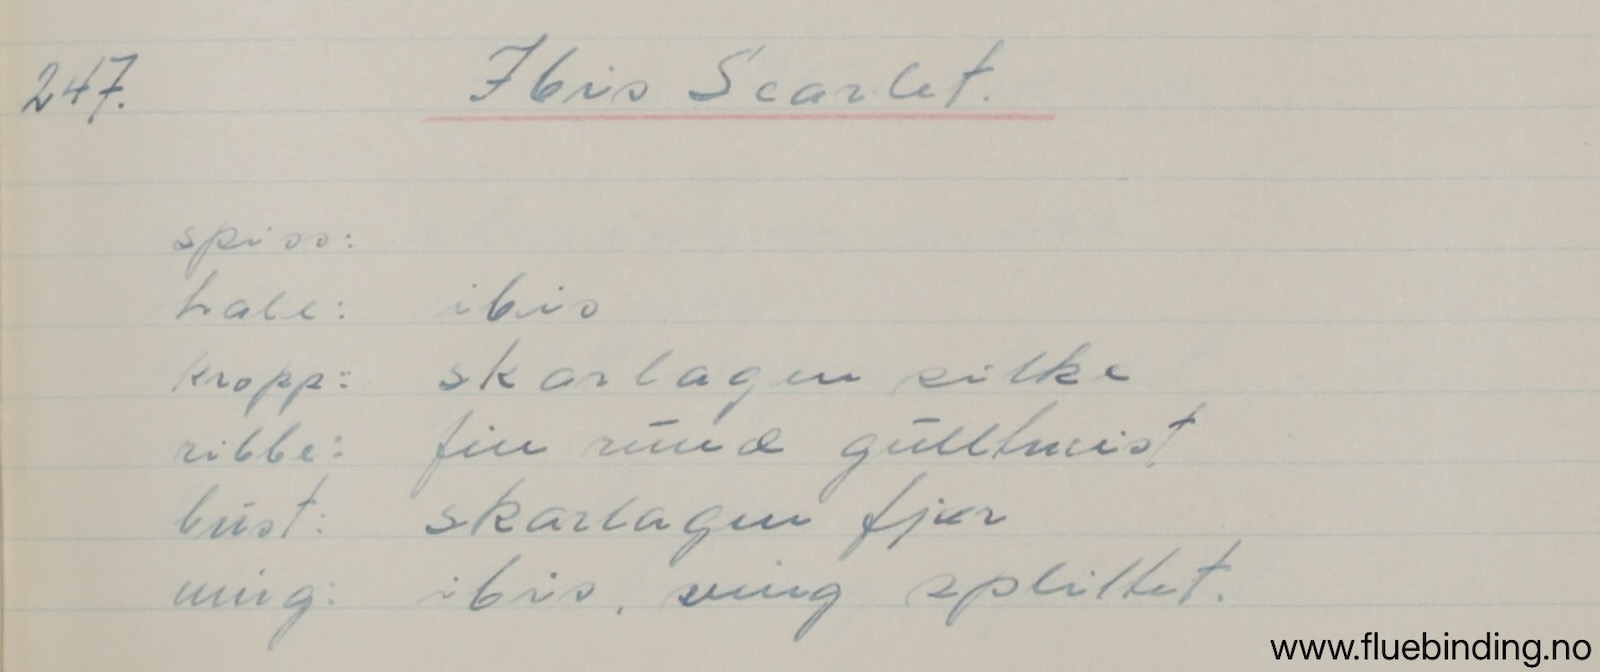 247. Ibis Scarlet.
spiss:
hale: ibis
kropp: skarlagen silke
ribbe: fin rund gulltvist
bust: skarlagen fjær
ving: ibis, ving splittet.
www.fluebinding.no